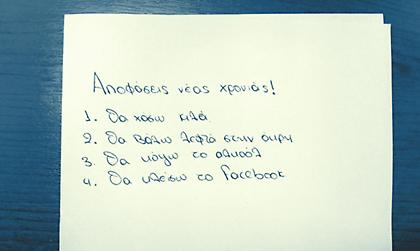 Αποφάσεις νέας χρονιάς!
1. Θα χάσω κιλά
2. Θα βάλω λεφτά στην άκρη
3. Θα κόψω το αλκοόλ
4. Θα κλείσω το facebook